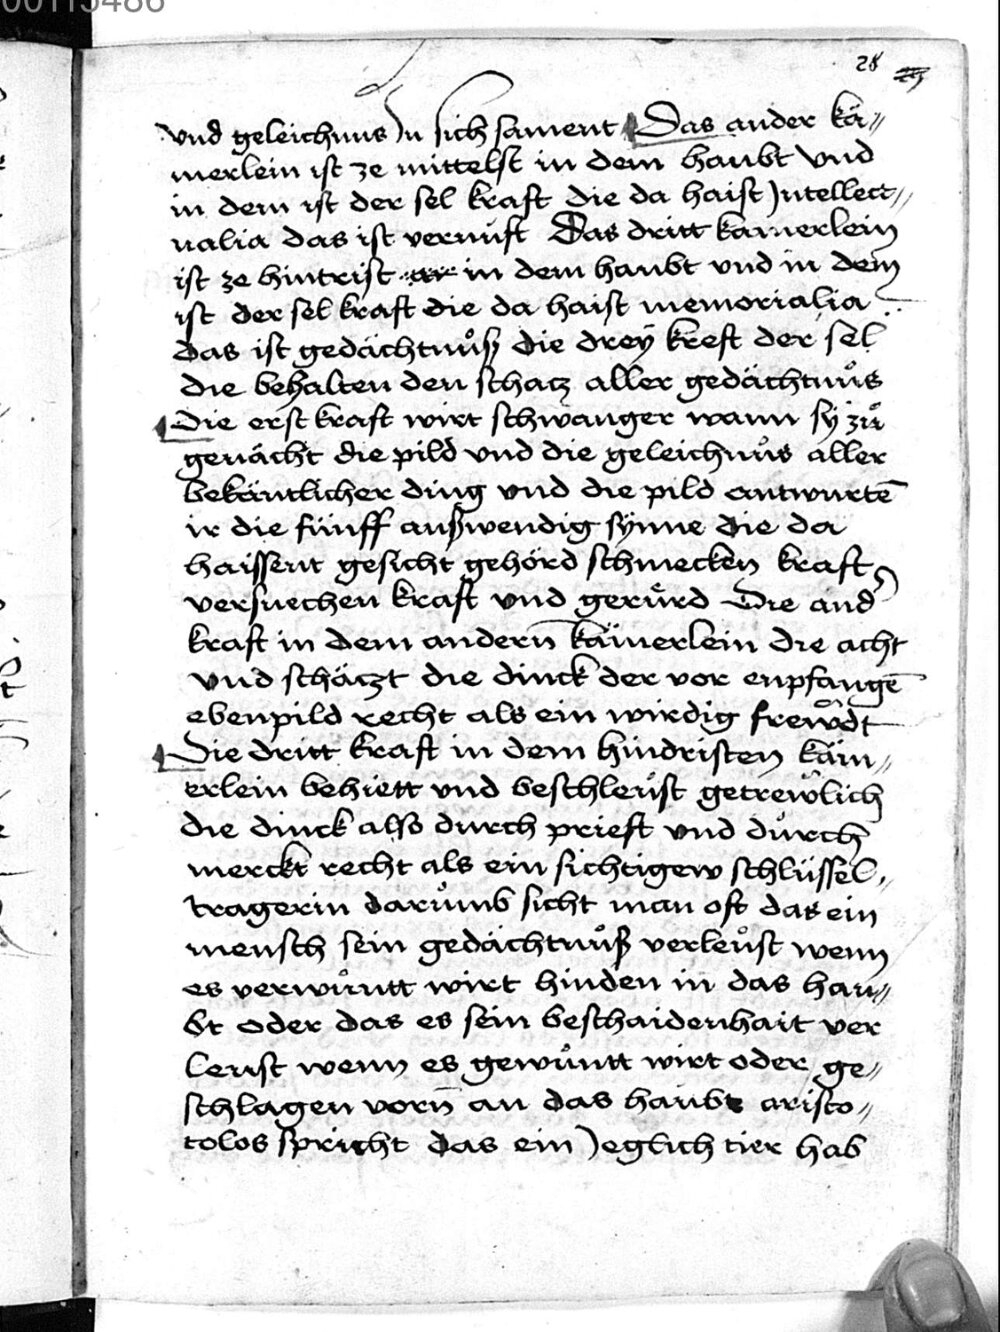 00115486
28
vnd geleichnus Jn sich sament Das ander kä„
merlein ist ze mittelst in dem haubt vnd
in dem ist der sel kraft die da haist Jntellect„
ualia das ist vernüft Das dritt kamerlein
ist ze hintrist in dem haubt vnd in dem
ist der sel kraft die da haist memorialia
das ist gedächtnůß die dreÿ kreft der sel
die behalten den schatz aller gedächtnůs
Die erst kraft wirt schwanger wann sÿ zů
genächt die pild vnd die geleichnůs aller
bekäntlicher ding vnd die pild antwurtē
ir die fünff außwendig sÿnne die da
haissent gesicht gehörd schmecken kraft
versuechen kraft vnd gerůrd Die and
kraft in dem andern̄ kämerlein die acht
vnd schäczt die dinck der vor enpfangē
ebenpild recht als ein wirdig frewdt
Die dritt kraft in dem hindristen käm„
erlein behiett vnd beschleust getrewlich
die dinck also durch prieft vnd durch
merckt recht als ein sichtigew schlüssel„
tragerin darůmb sicht man oft das ein
mensch sein gedächtnůß verleůst wenn
es verwůntt wirt hinden in das hau„
bt oder das es sein beschaidenhait ver
leust wenn es gewůntt wirt oder ge„
schlagen vorn̄ an das haubt aristo„
tolos spricht das ein Jeglich tier hab